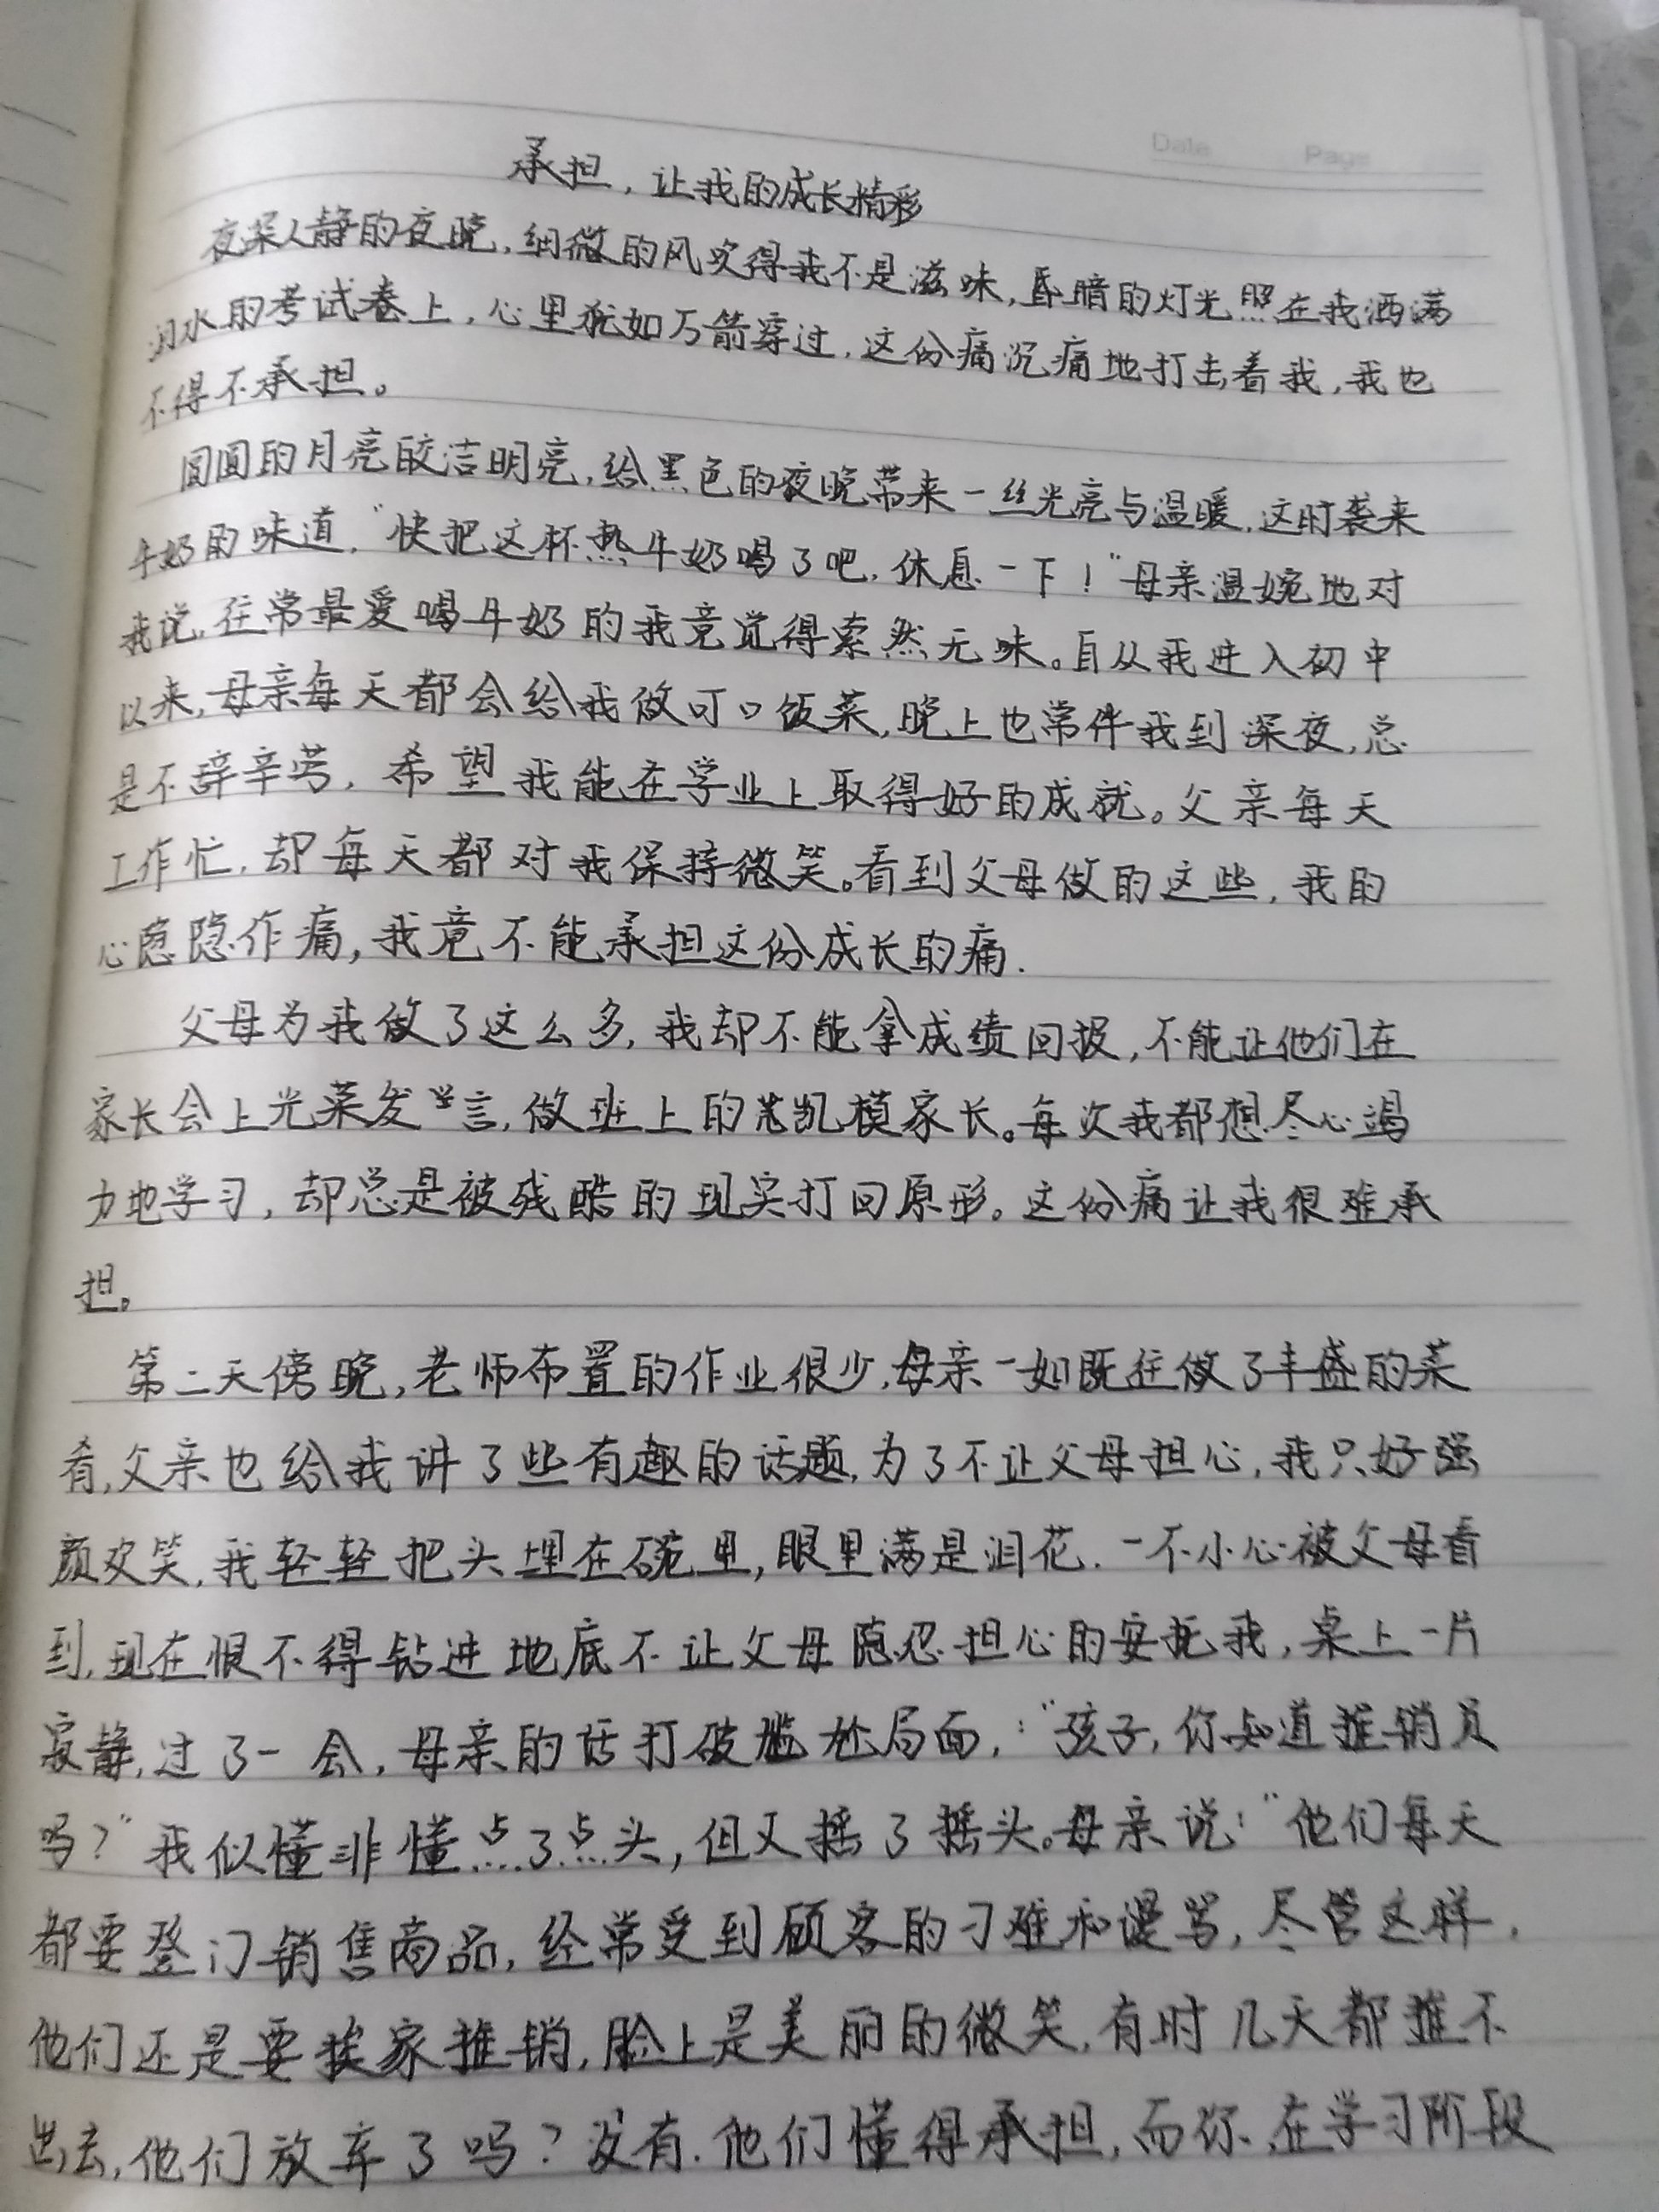 Date Page
承担，让我的成长精彩
夜深人静的夜晚，细微的风吹得我不是滋味，昏暗的灯光照在我洒满
泪水的考试卷上，心里犹如万箭穿过，这份痛沉痛地打击着我，我也
不得不承担。
圆圆的月亮皎洁明亮，给黑色的夜晚带来一丝光亮与温暖，这时袭来
牛奶的味道，“快把这杯热牛奶喝了吧，休息一下！”母亲温婉地对
我说，往常最爱喝牛奶的我竟觉得索然无味。自从我进入初中
以来，母亲每天都会给我做可口饭菜，晚上也常伴我到深夜，总
是不辞辛劳，希望我能在学业上取得好的成就。父亲每天
工作忙，却每天都对我保持微笑。看到父母做的这些，我的
心隐隐作痛，我竟不能承担这份成长的痛．
父母为我做了这么多，我却不能拿成绩回报，不能让他们在
家长会上光荣发言，做班上的模家长。每次我都想尽心竭
力地学习，却总是被残酷的现实打回原形。这份痛让我很难承
担。
第二天傍晚，老师布置的作业很少，母亲一如既往做了丰盛的菜
肴，父亲也给我讲了些有趣的话题，为了不让父母担心，我只好强
颜欢笑，我轻轻把头埋在碗里，眼里满是泪花．一不小心被父母看
到，现在恨不得钻进地底不让父母隐忍担心的安抚我，桌上一片
寂静，过了一会，母亲的话打破尴尬局面，：“孩子，你知道推销员
吗？”我似懂非懂点了点头，但又摇了摇头。母亲说：“他们每天
都要登门销售商品，经常受到顾客的刁难和谩骂，尽管这样，
他们还是要挨家推销，脸上是美丽的微笑，有时几天都推不
出去，他们放弃了吗？没有．他们懂得承担，而你，在学习阶段